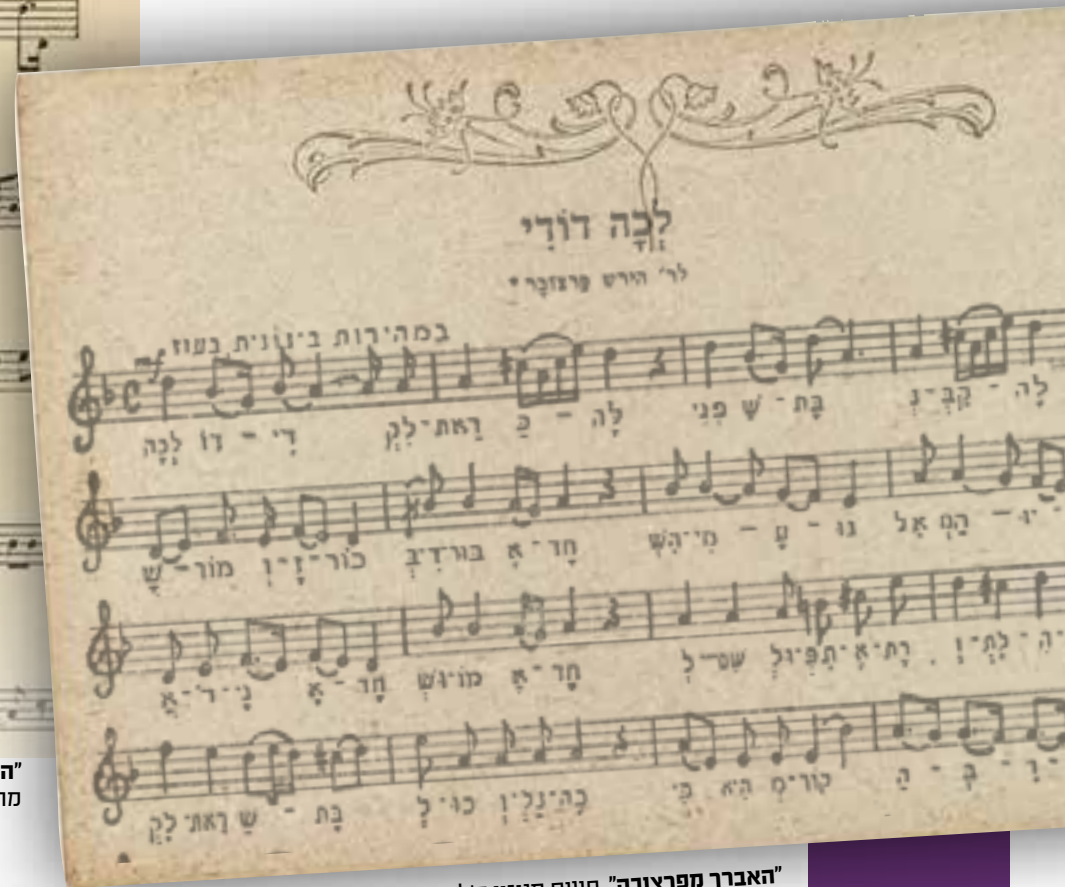 לְכָה דוֹדִי
לר' הירש פרצובר *
במהירות בינונית, בעוז
mf
לְכָה דוֹ - דִי לִקְ־רַאת כַּ - לָה פְּנֵי שַׁ - בָּת נְ־קַבְּ - לָה
שָׁ - מוֹר וְ־זָ־כוֹר בְּ־דִ־בּוּר אֶ־חָד הִשְׁ־מִי - עָ - נוּ אֵל הַמְ - יוּ -
אֲ־דֹ־נָי אֶ־חָד וּשְׁמוֹ אֶ־חָד לְ־שֵׁם וּלְ־תִפְ־אֶ־רֶת וְ־לִתְ־הִ־
לִקְ־רַאת שַׁ - בָּת לְ־כוּ וְ־נֵלְ־כָה כִּי הִיא מְ־קוֹר הַ - בְּ - רָ -
"האברך מפרצובה"